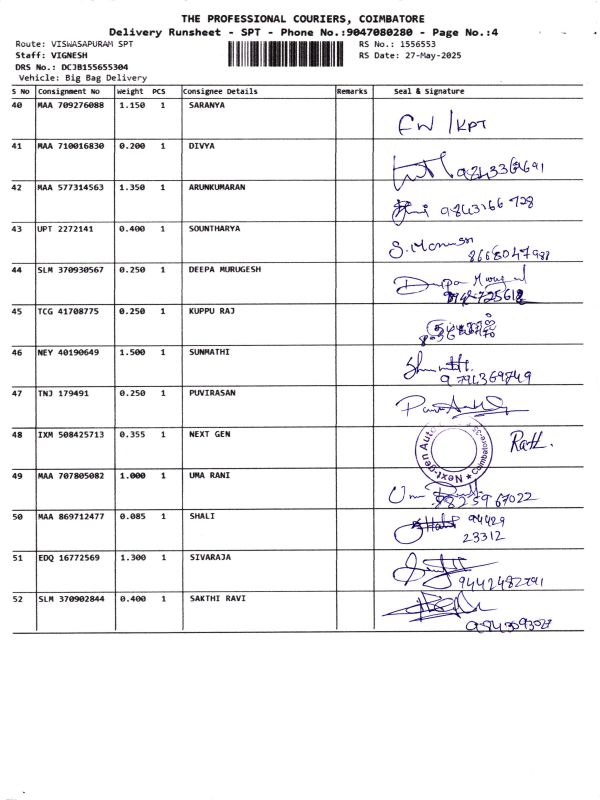 THE PROFESSIONAL COURIERS, COIMBATORE
Delivery Runsheet - SPT - Phone No.:9047080280 - Page No.:4
Route: VISWASAPURAM SPT RS No.: 1556553
Staff: VIGNESH RS Date: 27-May-2025
DRS No.: DCJB155655304
Vehicle: Big Bag Delivery
S No Consignment No Weight PCS Consignee Details Remarks Seal & Signature
40 MAA 709276088 1.150 1 SARANYA
CW /KPT
41 MAA 710016830 0.200 1 DIVYA
42 MAA 577314563 1.350 1 ARUNKUMARAN
9843166 728
43 UPT 2272141 0.400 1 SOUNTHARYA
8668047981
44 SLM 370930567 0.250 1 DEEPA MURUGESH
Deepa
45 TCG 41708775 0.250 1 KUPPU RAJ
46 NEY 40190649 1.500 1 SUNMATHI
9791369749
47 TNJ 179491 0.250 1 PUVIRASAN
48 IXM 508425713 0.355 1 NEXT GEN
Next-gen Auto Coimbatore-35
49 MAA 707805082 1.000 1 UMA RANI
Uma 98233967022
50 MAA 869712477 0.085 1 SHALI
Shali 94429
23312
51 EDQ 16772569 1.300 1 SIVARAJA
9442482791
52 SLM 370902844 0.400 1 SAKTHI RAVI
9843093027